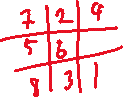 7 2 9
5 6
8 3 1